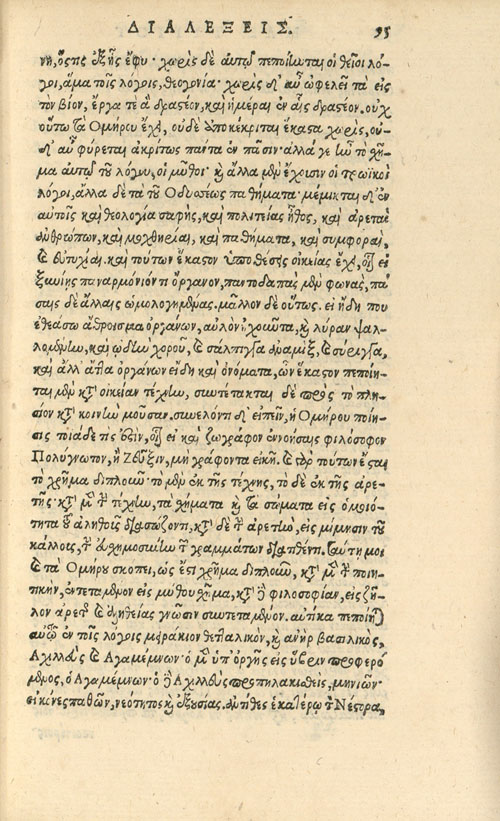 ΔΙΑΛΕΞΕΙΣ. 95
νη, ὅστις ἐξ ἧς ἔφυ· χωρὶς δὲ αὐτῷ πεποίωται οἱ θεῖοι λό-
γοι, ἅμα τοῖς λόγοις, θεογονία· χωρὶς δ' αὖ ὠφελεῖ τὰ εἰς
τὸν βίον, ἔργα τε ἃ δραστέον, καὶ ἡμέραι ἐν αἷς δραστέον. οὐχ
οὕτω τὰ Ομήρου ἔχει, οὐδὲ ἀποκέκριται ἕκαστα χωρὶς, οὐ-
δ' αὖ φύρεται ἀκρίτως πάντα ἐν πᾶσιν· ἀλλά γε τὸ σχῆ-
μα αὐτῷ τοῦ λόγου, οἱ μῦθοι· καὶ ἄλλα μὲν ἔχουσιν οἱ τρωϊκοὶ
λόγοι, ἄλλα δὲ τὰ τοῦ Οδυσσέως παθήματα· μέμικται δ' ἐν
αὐτοῖς καὶ θεολογία σαφὴς, καὶ πολιτείας ἦθος, καὶ ἀρεταὶ
ἀνθρώπων, καὶ μοχθηρίαι, καὶ παθήματα, καὶ συμφοραὶ,
καὶ εὐτυχίαι. καὶ τούτων ἕκαστον ὑποθέσεις οἰκείας ἔχει, οἷον εἰ
ξυνίης παναρμόνιόν τι ὄργανον, παντοδαπὰς μὲν φωνὰς, πά-
σας δὲ ἀλλήλαις ὡμολογημένας. μᾶλλον δὲ οὕτως. εἰ ἤδη που
ἐθεάσω ἄθροισμα ὀργάνων, αὐλὸν ἠχοῦντα, καὶ λύραν ψαλ-
λομένην, καὶ ᾠδὴν χοροῦ, καὶ σάλπιγγα ἀναμὶξ, καὶ σύριγγα,
καὶ ἄλλ' ἄττα ὀργάνων εἴδη καὶ ὀνόματα, ὧν ἕκαστον πεποίη-
ται μὲν κατ' οἰκείαν τέχνην, συντέτακται δὲ πρὸς τὸ πλη-
σίον κατὰ κοινὴν μοῦσαν. συνελόντι δ' εἰπεῖν, ἡ Ομήρου ποίη-
σις τοιάδε τίς ἐστιν, οἷον εἰ καὶ ζωγράφον ἐννοήσαις φιλόσοφον
Πολύγνωτον, ἢ Ζεῦξιν, μὴ γράφοντα εἰκῆ. καὶ γὰρ τούτων ἔσται
τὸ χρῆμα διπλοῦν· τὸ μὲν ἐκ τῆς τέχνης, τὸ δὲ ἐκ τῆς ἀρε-
τῆς· κατὰ μὲν τὴν τέχνην, τὰ σχήματα καὶ τὰ σώματα εἰς ὁμοιό-
τητα τοῦ ἀληθοῦς διασώζοντι, κατὰ δὲ τὴν ἀρετὴν, εἰς μίμησιν τοῦ
κάλλους, τὴν εὐσχημοσύνην τῶν γραμμάτων διατιθέντι. ταύτη μοι
καὶ τὰ Ομήρου σκόπει, ὡς ἔστι χρῆμα διπλοῦν, κατὰ μὲν τὴν ποιη-
τικὴν, ἐντεταμένον εἰς μύθου σχῆμα, κατὰ δὲ φιλοσοφίαν, εἰς ζῆ-
λον ἀρετῆς καὶ ἀληθείας γνῶσιν συντεταμένον. αὐτίκα πεποίηται
αὐτῷ ἐν τοῖς λόγοις μειράκιον θετταλικὸν, καὶ ἀνὴρ βασιλικὸς,
Αχιλλεὺς καὶ Αγαμέμνων· ὁ μὲν ὑπ' ὀργῆς εἰς ὕβριν προφερό-
μενος, ὁ Αγαμέμνων· ὁ δὲ Αχιλλεὺς προπηλακισθεὶς, μηνιῶν·
εἰκόνες παθῶν, νεότητος καὶ ἐξουσίας. ἀντίθες ἑκατέρῳ τὸν Νέστορα,